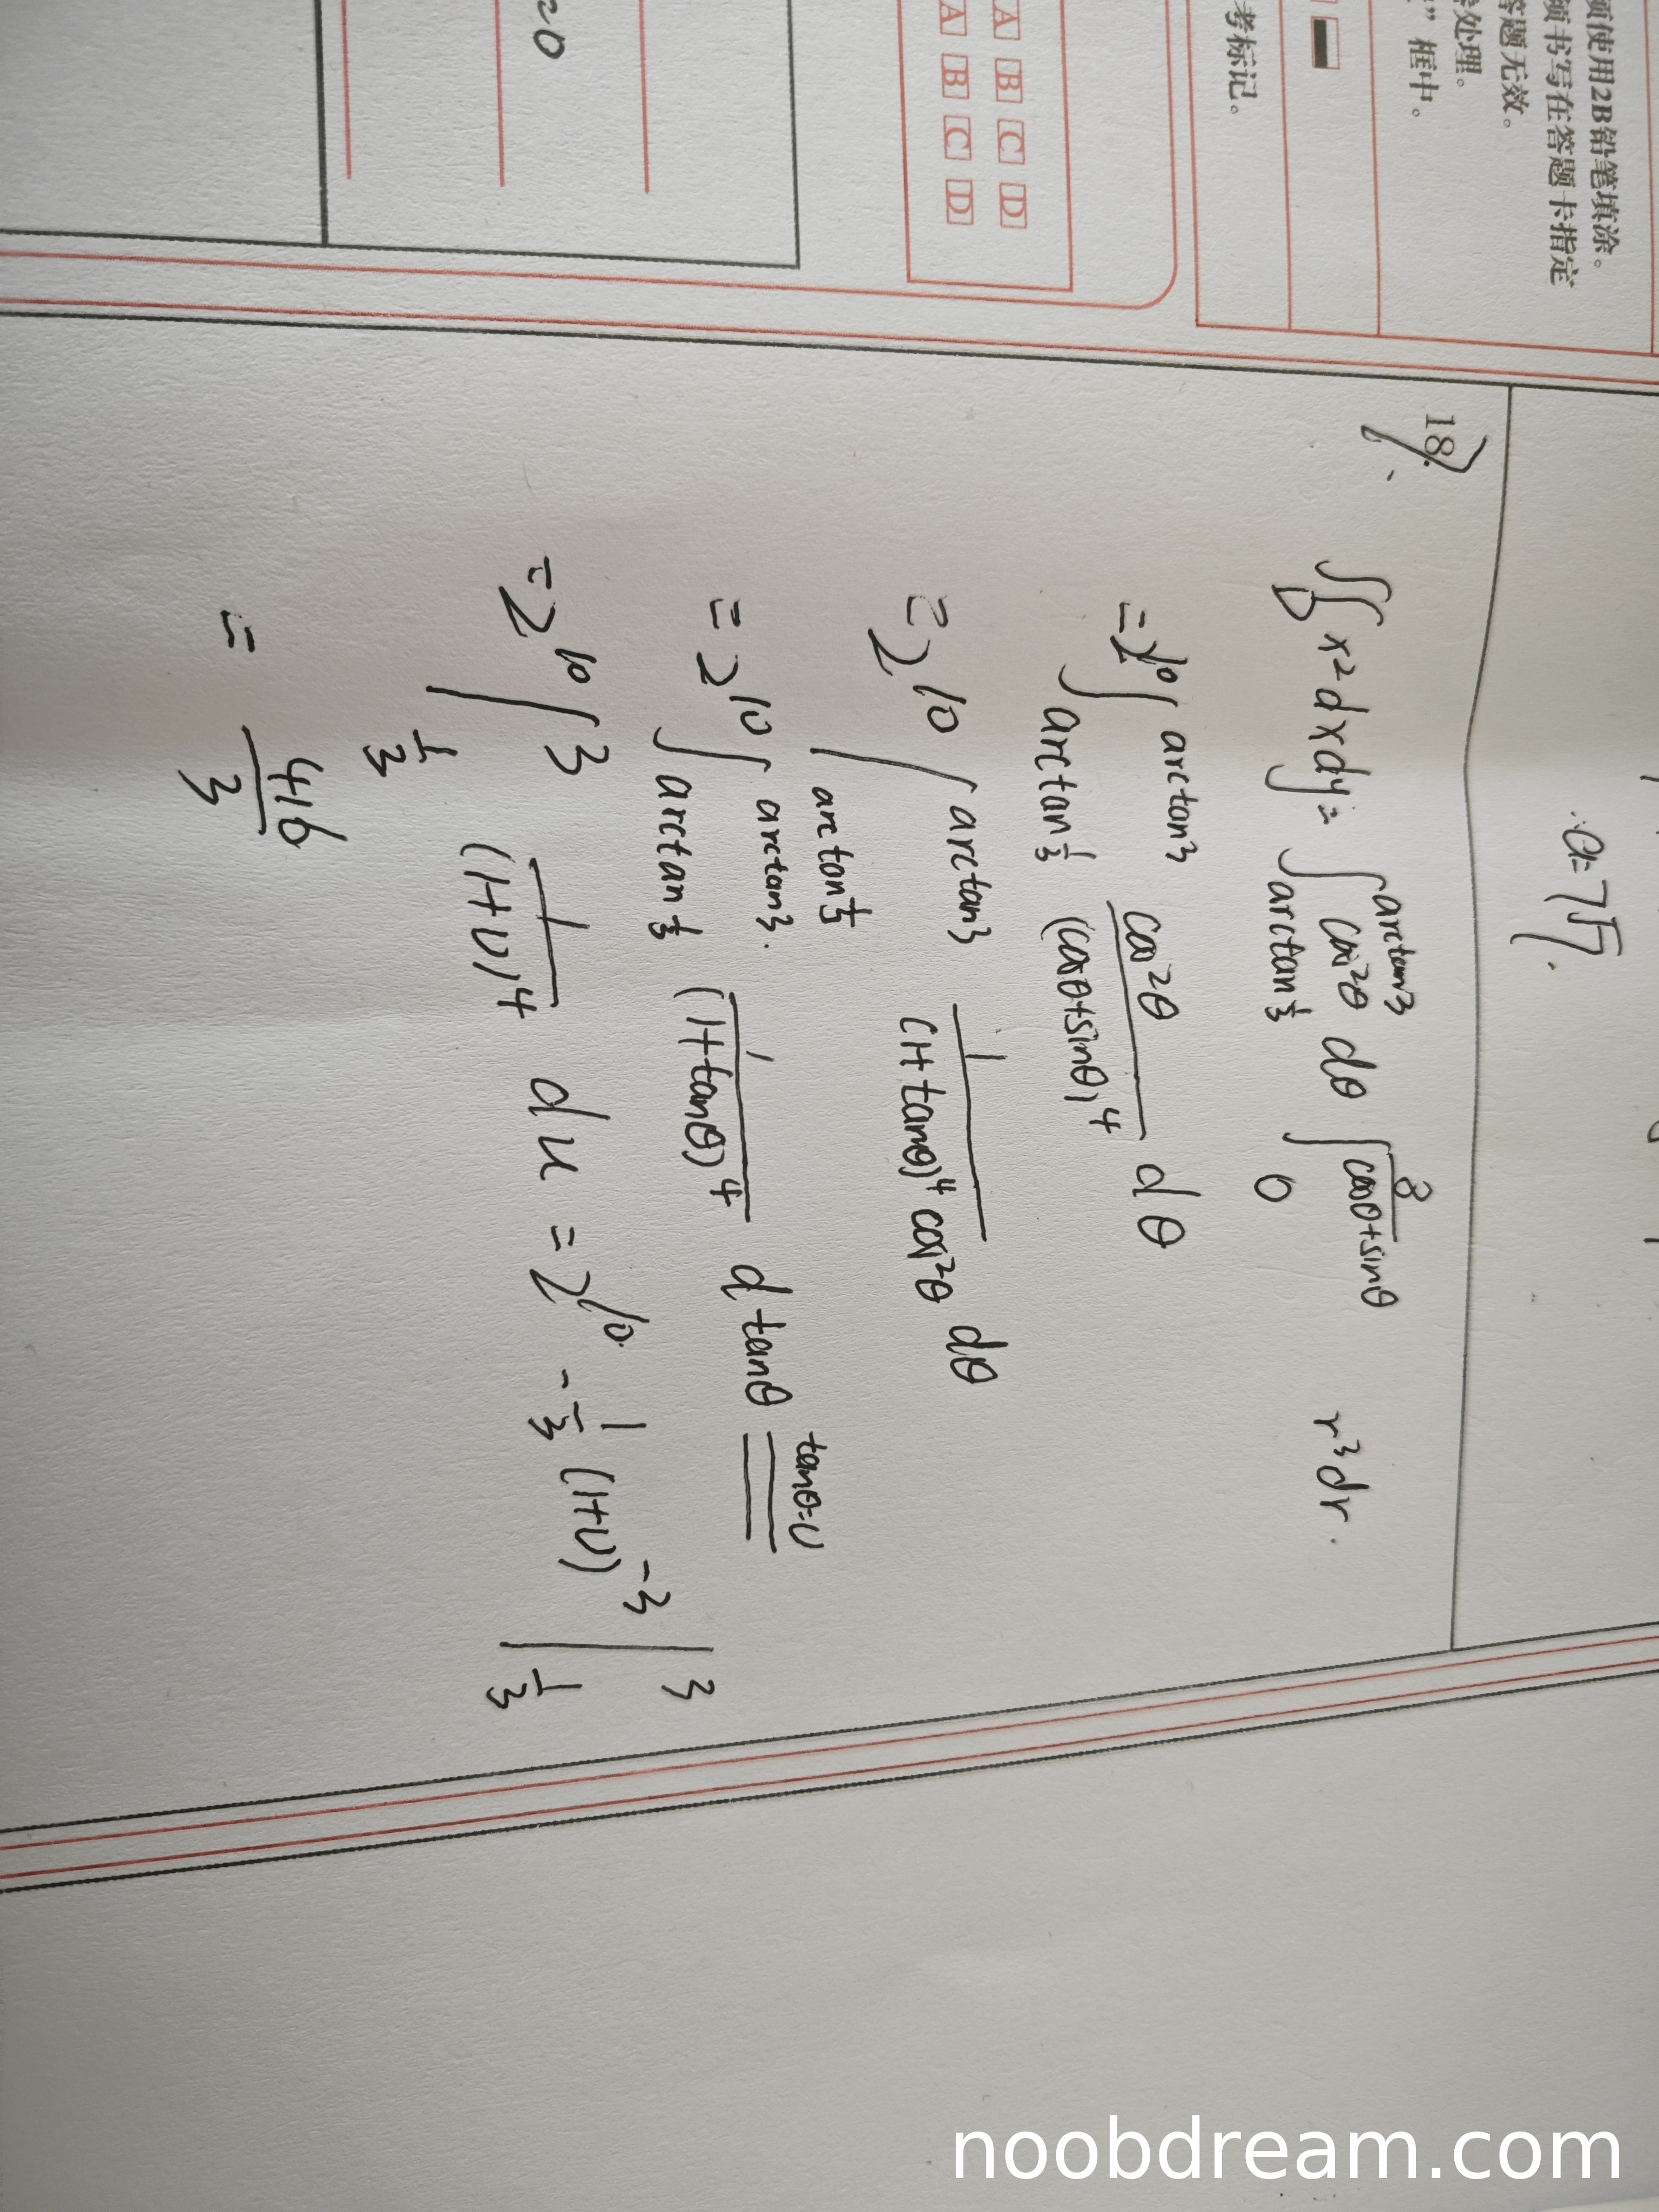 须使用2B铅笔填涂。
须书写在答题卡指定
答题无效。
处理。
”框中。
考标记。
A B C D
A B C D
20
a=7√7.
18.
∬_D x²dxdy = ∫_{arctan 1/3}^{arctan3} cos²θ dθ ∫_0^{8/(cosθ+sinθ)} r³dr.
=2^10 ∫_{arctan 1/3}^{arctan3} cos²θ/(cosθ+sinθ)^4 dθ
=2^10 ∫_{arctan 1/3}^{arctan3} 1/((1+tanθ)^4 cos²θ) dθ
=2^10 ∫_{arctan 1/3}^{arctan3.} 1/(1+tanθ)^4 d tanθ tanθ=u
=2^10 ∫_{1/3}^{3} 1/(1+u)^4 du = 2^10. -1/3 (1+u)^{-3} |_{1/3}^{3}
= 416/3
noobdream.com